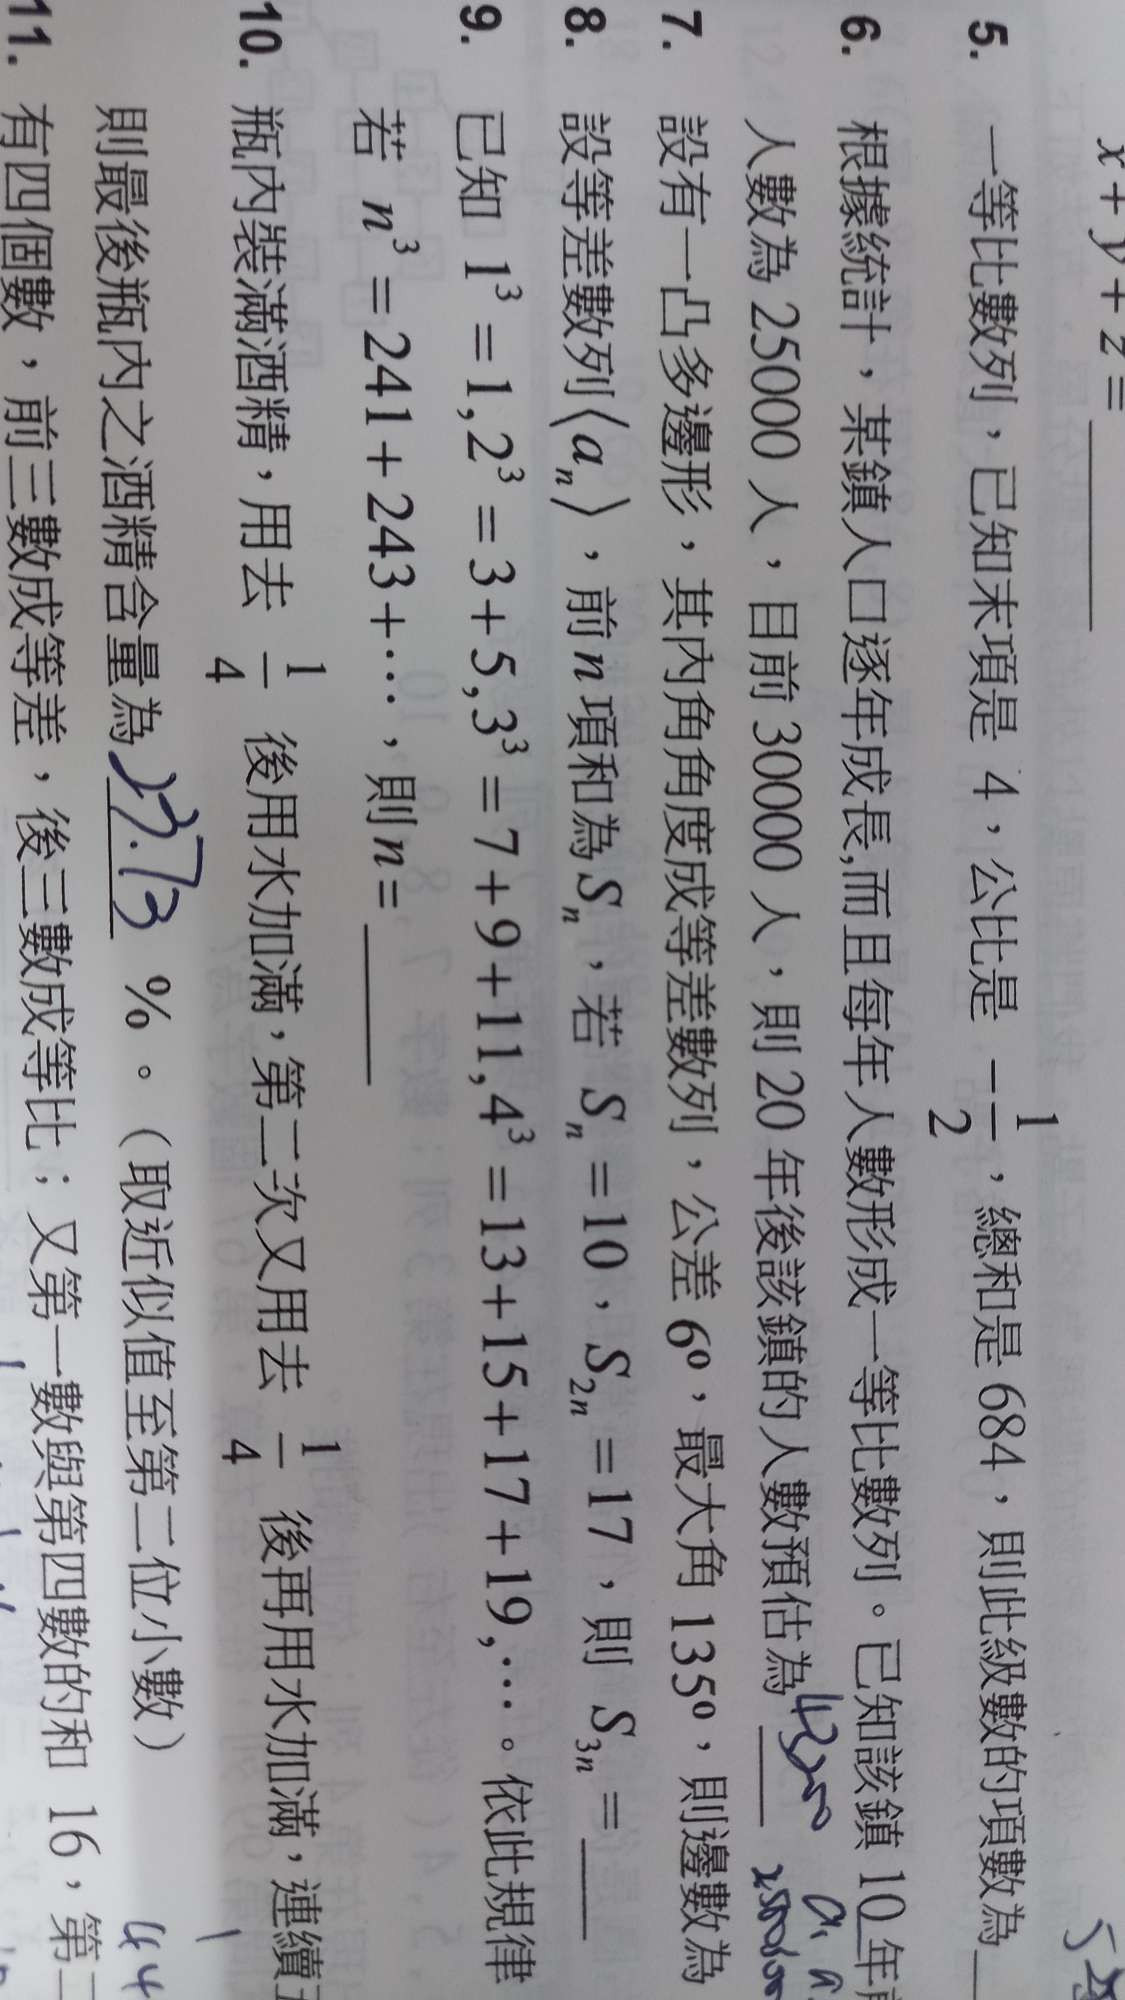 x + y + z = ______
5. 一等比數列，已知末項是 4，公比是 -1/2，總和是 684，則此級數的項數為
6. 根據統計，某鎮人口逐年成長,而且每年人數形成一等比數列。已知該鎮 10 年
人數為 25000 人，目前 30000 人，則 20 年後該鎮的人數預估為 43200
7. 設有一凸多邊形，其內角角度成等差數列，公差 6°，最大角 135°，則邊數為
8. 設等差數列⟨aₙ⟩，前 n 項和為 Sₙ，若 Sₙ = 10，S₂ₙ = 17，則 S₃ₙ = ____
9. 已知 1³ = 1, 2³ = 3 + 5, 3³ = 7 + 9 + 11, 4³ = 13 + 15 + 17 + 19, …。依此規律
若 n³ = 241 + 243 + …，則 n = ______
10. 瓶內裝滿酒精，用去 1/4 後用水加滿，第二次又用去 1/4 後再用水加滿，連續
則最後瓶內之酒精含量為 23.73 %。（取近似值至第二位小數）
11. 有四個數，前三數成等差，後三數成等比；又第一數與第四數的和 16，第二